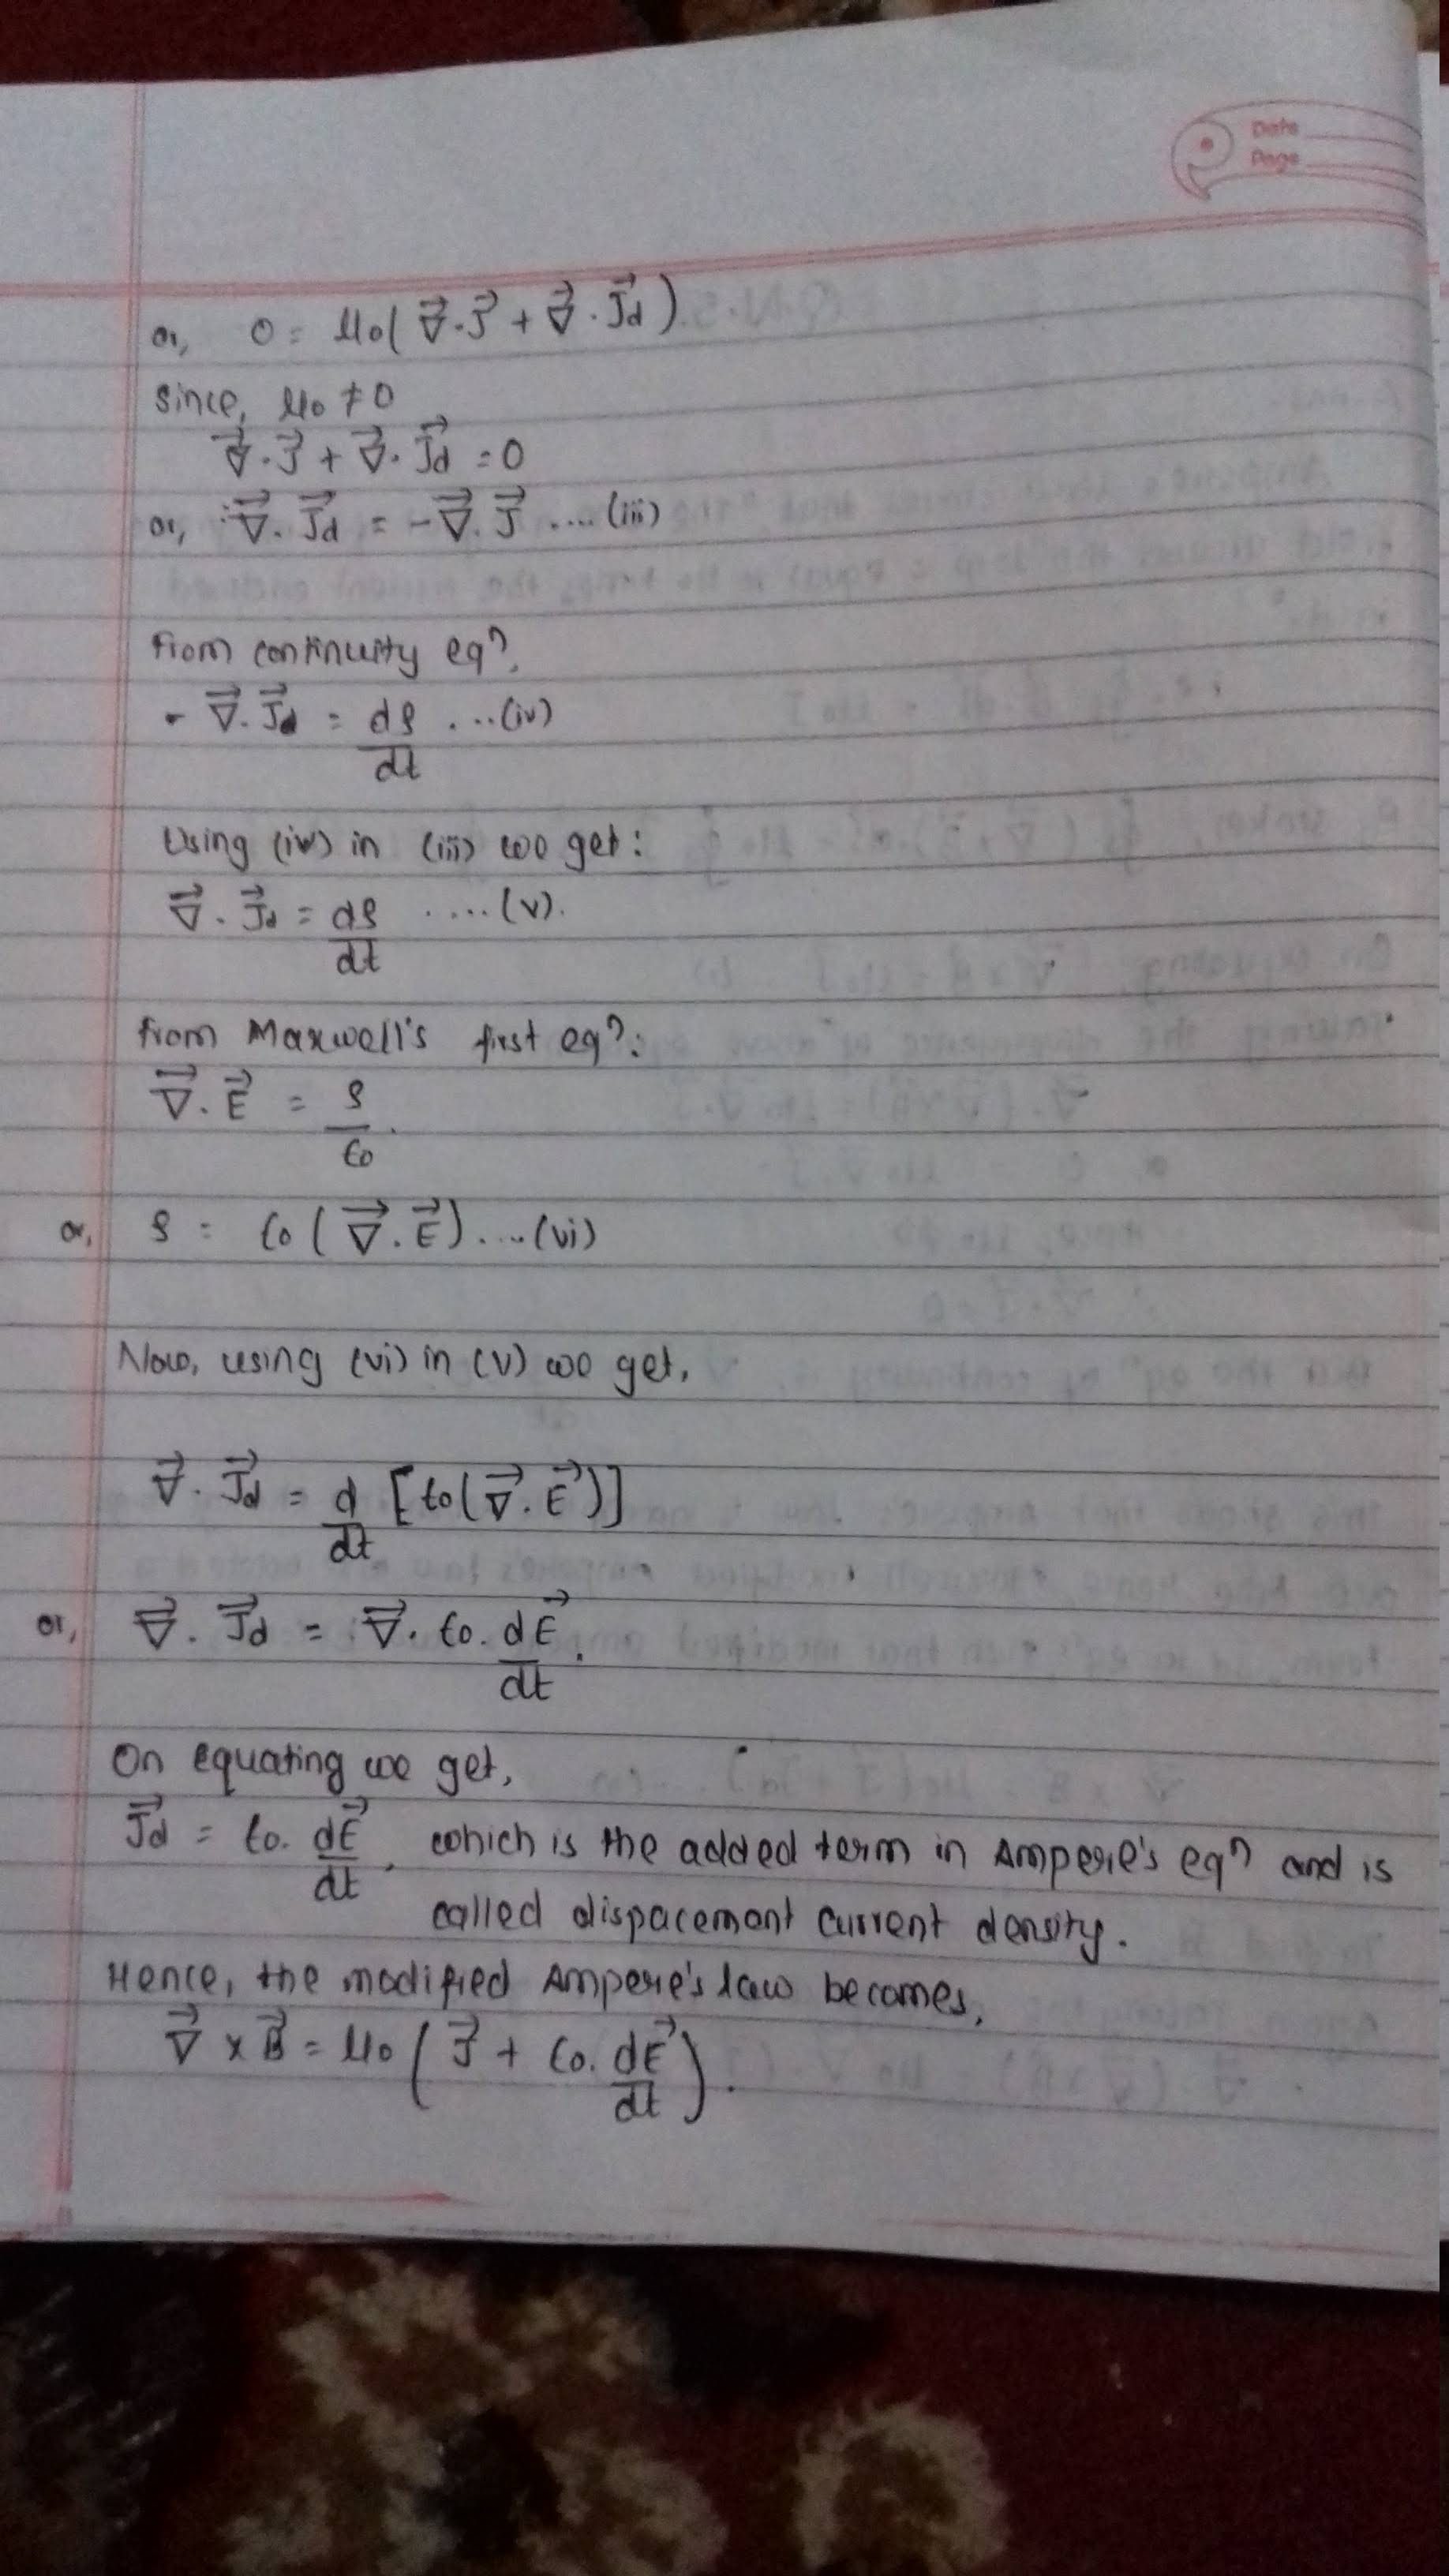 Date
Page
or, 0 = μ₀(∇⃗.J⃗ + ∇⃗.J⃗d)
since, μ₀ ≠ 0
∇⃗.J⃗ + ∇⃗.J⃗d = 0
or, ∇⃗.J⃗d = -∇⃗.J⃗ ....(iii)
From continuity eqⁿ,
- ∇⃗.J⃗d = dρ/dt ...(iv)
Using (iv) in (iii) we get:
∇⃗.J⃗d = dρ/dt ....(v).
from Maxwell's first eqⁿ:
∇⃗.E⃗ = ρ/ϵ₀.
or, ρ = ϵ₀(∇⃗.E⃗)....(vi)
Now, using (vi) in (v) we get,
∇⃗.J⃗d = d/dt [ϵ₀(∇⃗.E⃗)]
or, ∇⃗.J⃗d = ∇⃗.ϵ₀.dE⃗/dt.
On equating we get,
J⃗d = ϵ₀.dE⃗/dt, which is the added term in Ampere's eqⁿ and is
called dispacement current density.
Hence, the modified Ampere's law becomes,
∇⃗ x B⃗ = μ₀(J⃗ + ϵ₀.dE⃗/dt).